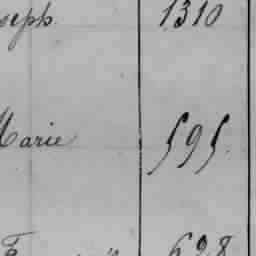 seph 1310
Marie 595.
628